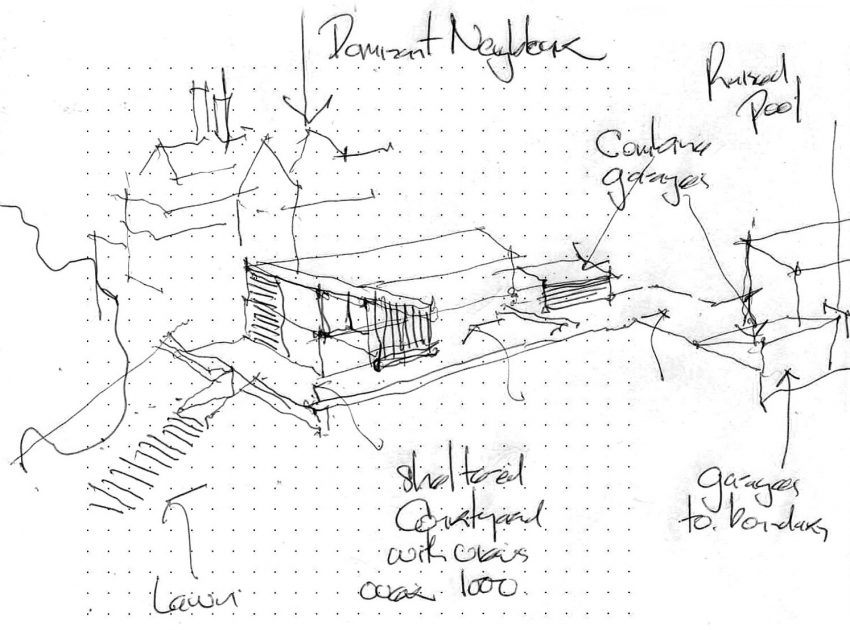 Dominant Neighbour
Raised
Pool
Combine
garages
sheltered
Courtyard
with views
over
garages
to boundary
Lawn